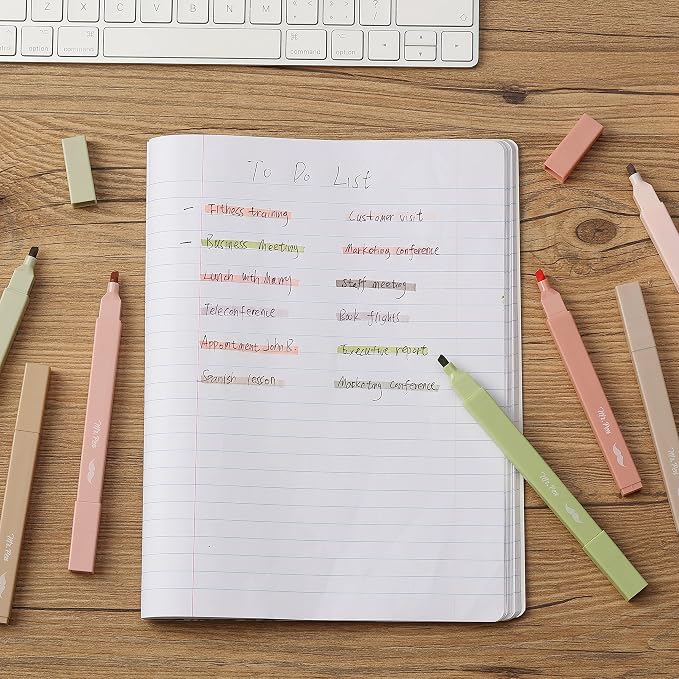 control
option
command
command
option
To Do List
- Fitness training
Customer visit
- Business Meeting
Marketing conference
Lunch with Marry
Staff meeting
Teleconference
Book flights
Appointment John B.
Executive report
Spanish lesson
Marketing Conference
Mr. Pen
Mr. Pen
Mr. Pen
Mr. Pen
Mr. Pen